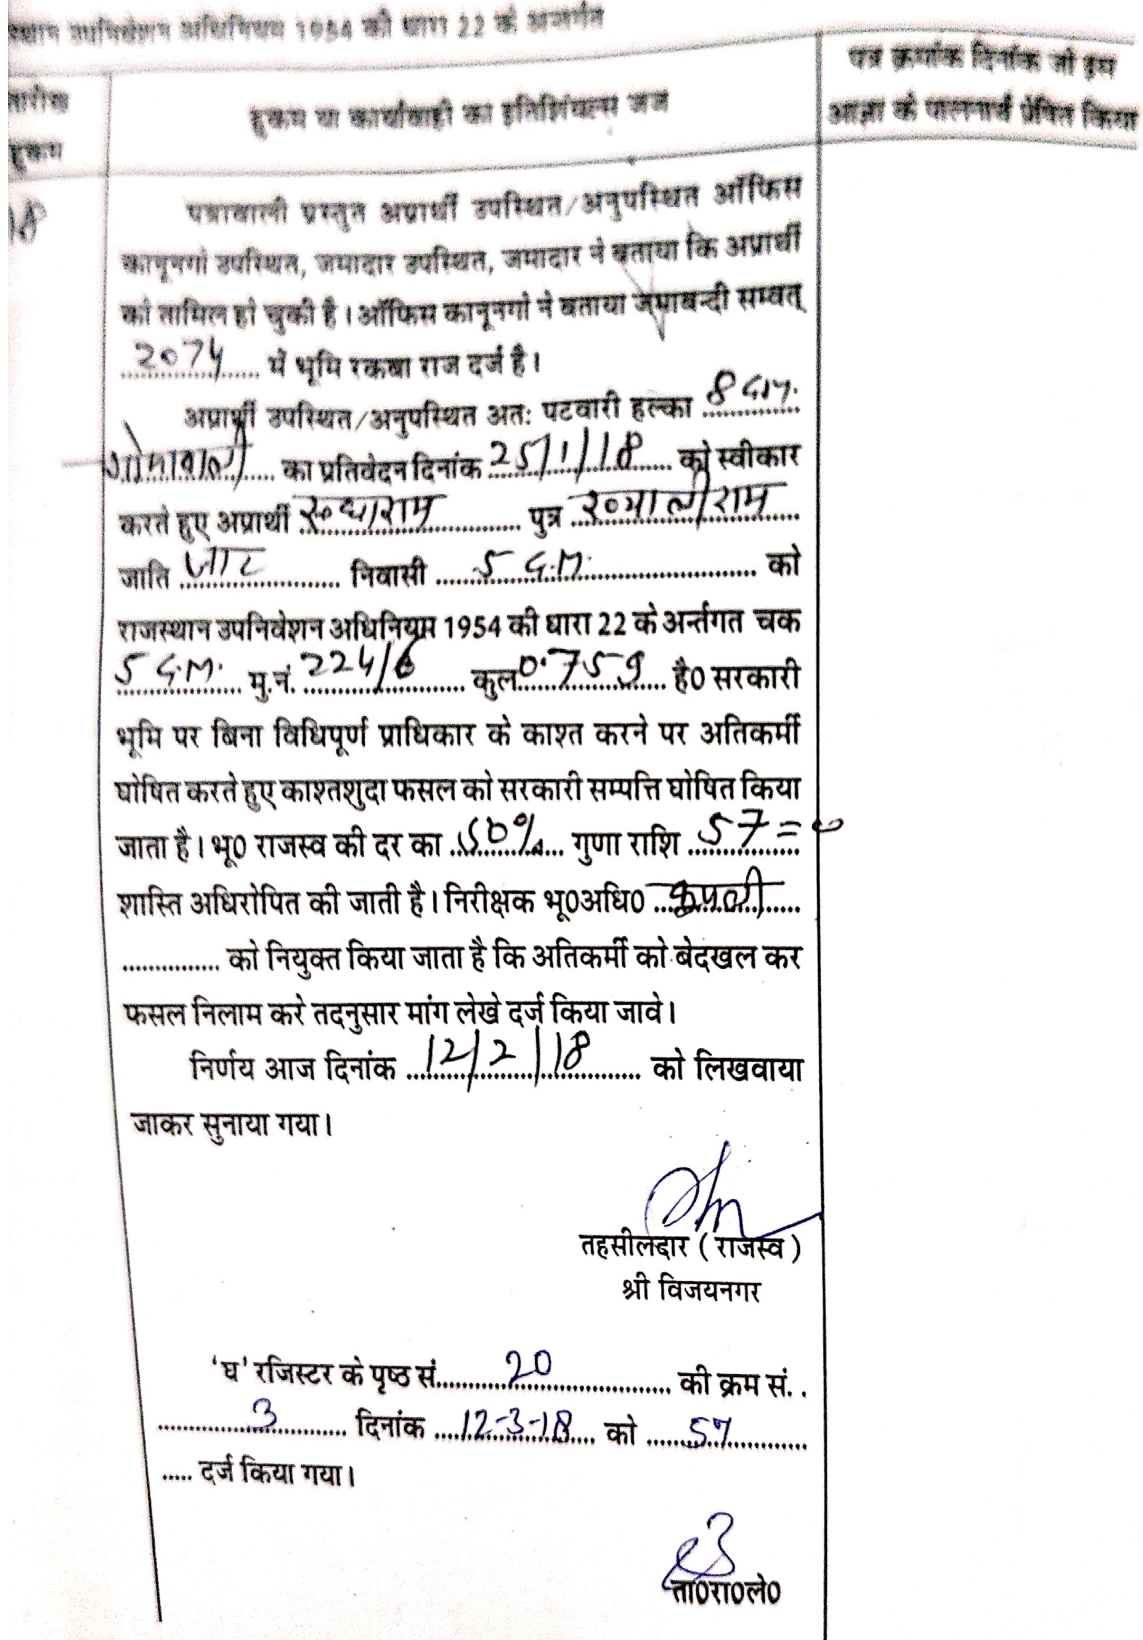 स्थान उपनिवेशन अधिनियम 1954 की धारा 22 के अन्तर्गत
तारीख
हुकम
हुकम या कार्यावाही का इतिशियल्स जज
पत्र क्रमांक दिनांक जो इस
आज्ञा के पालनार्थ प्रेषित किया
18
पत्रावाली प्रस्तुत अप्रार्थी उपस्थित/अनुपस्थित ऑफिस
कानूनगो उपस्थित, जमादार उपस्थित, जमादार ने बताया कि अप्रार्थी
को तामिल हो चुकी है। ऑफिस कानूनगो ने बताया जमाबन्दी सम्वत्
2074 में भूमि रकबा राज दर्ज है।
अप्रार्थी उपस्थित/अनुपस्थित अतः पटवारी हल्का 8
का प्रतिवेदन दिनांक 25/1/18 को स्वीकार
करते हुए अप्रार्थी पुत्र
जाति जाट निवासी 5 G.M. को
राजस्थान उपनिवेशन अधिनियम 1954 की धारा 22 के अर्न्तगत चक
5 G.M. मु.नं. 224/6 कुल 0.759 है0 सरकारी
भूमि पर बिना विधिपूर्ण प्राधिकार के काश्त करने पर अतिकर्मी
घोषित करते हुए काश्तशुदा फसल को सरकारी सम्पत्ति घोषित किया
जाता है। भू0 राजस्व की दर का 50% गुणा राशि 57=00
शास्ति अधिरोपित की जाती है। निरीक्षक भू0अधि0
को नियुक्त किया जाता है कि अतिकर्मी को बेदखल कर
फसल निलाम करे तदनुसार मांग लेखे दर्ज किया जावे।
निर्णय आज दिनांक 12/2/18 को लिखवाया
जाकर सुनाया गया।
तहसीलदार ( राजस्व )
श्री विजयनगर
'घ' रजिस्टर के पृष्ठ सं. 20 की क्रम सं. .
3 दिनांक 12-3-18 को 57
दर्ज किया गया।
ता0रा0ले0